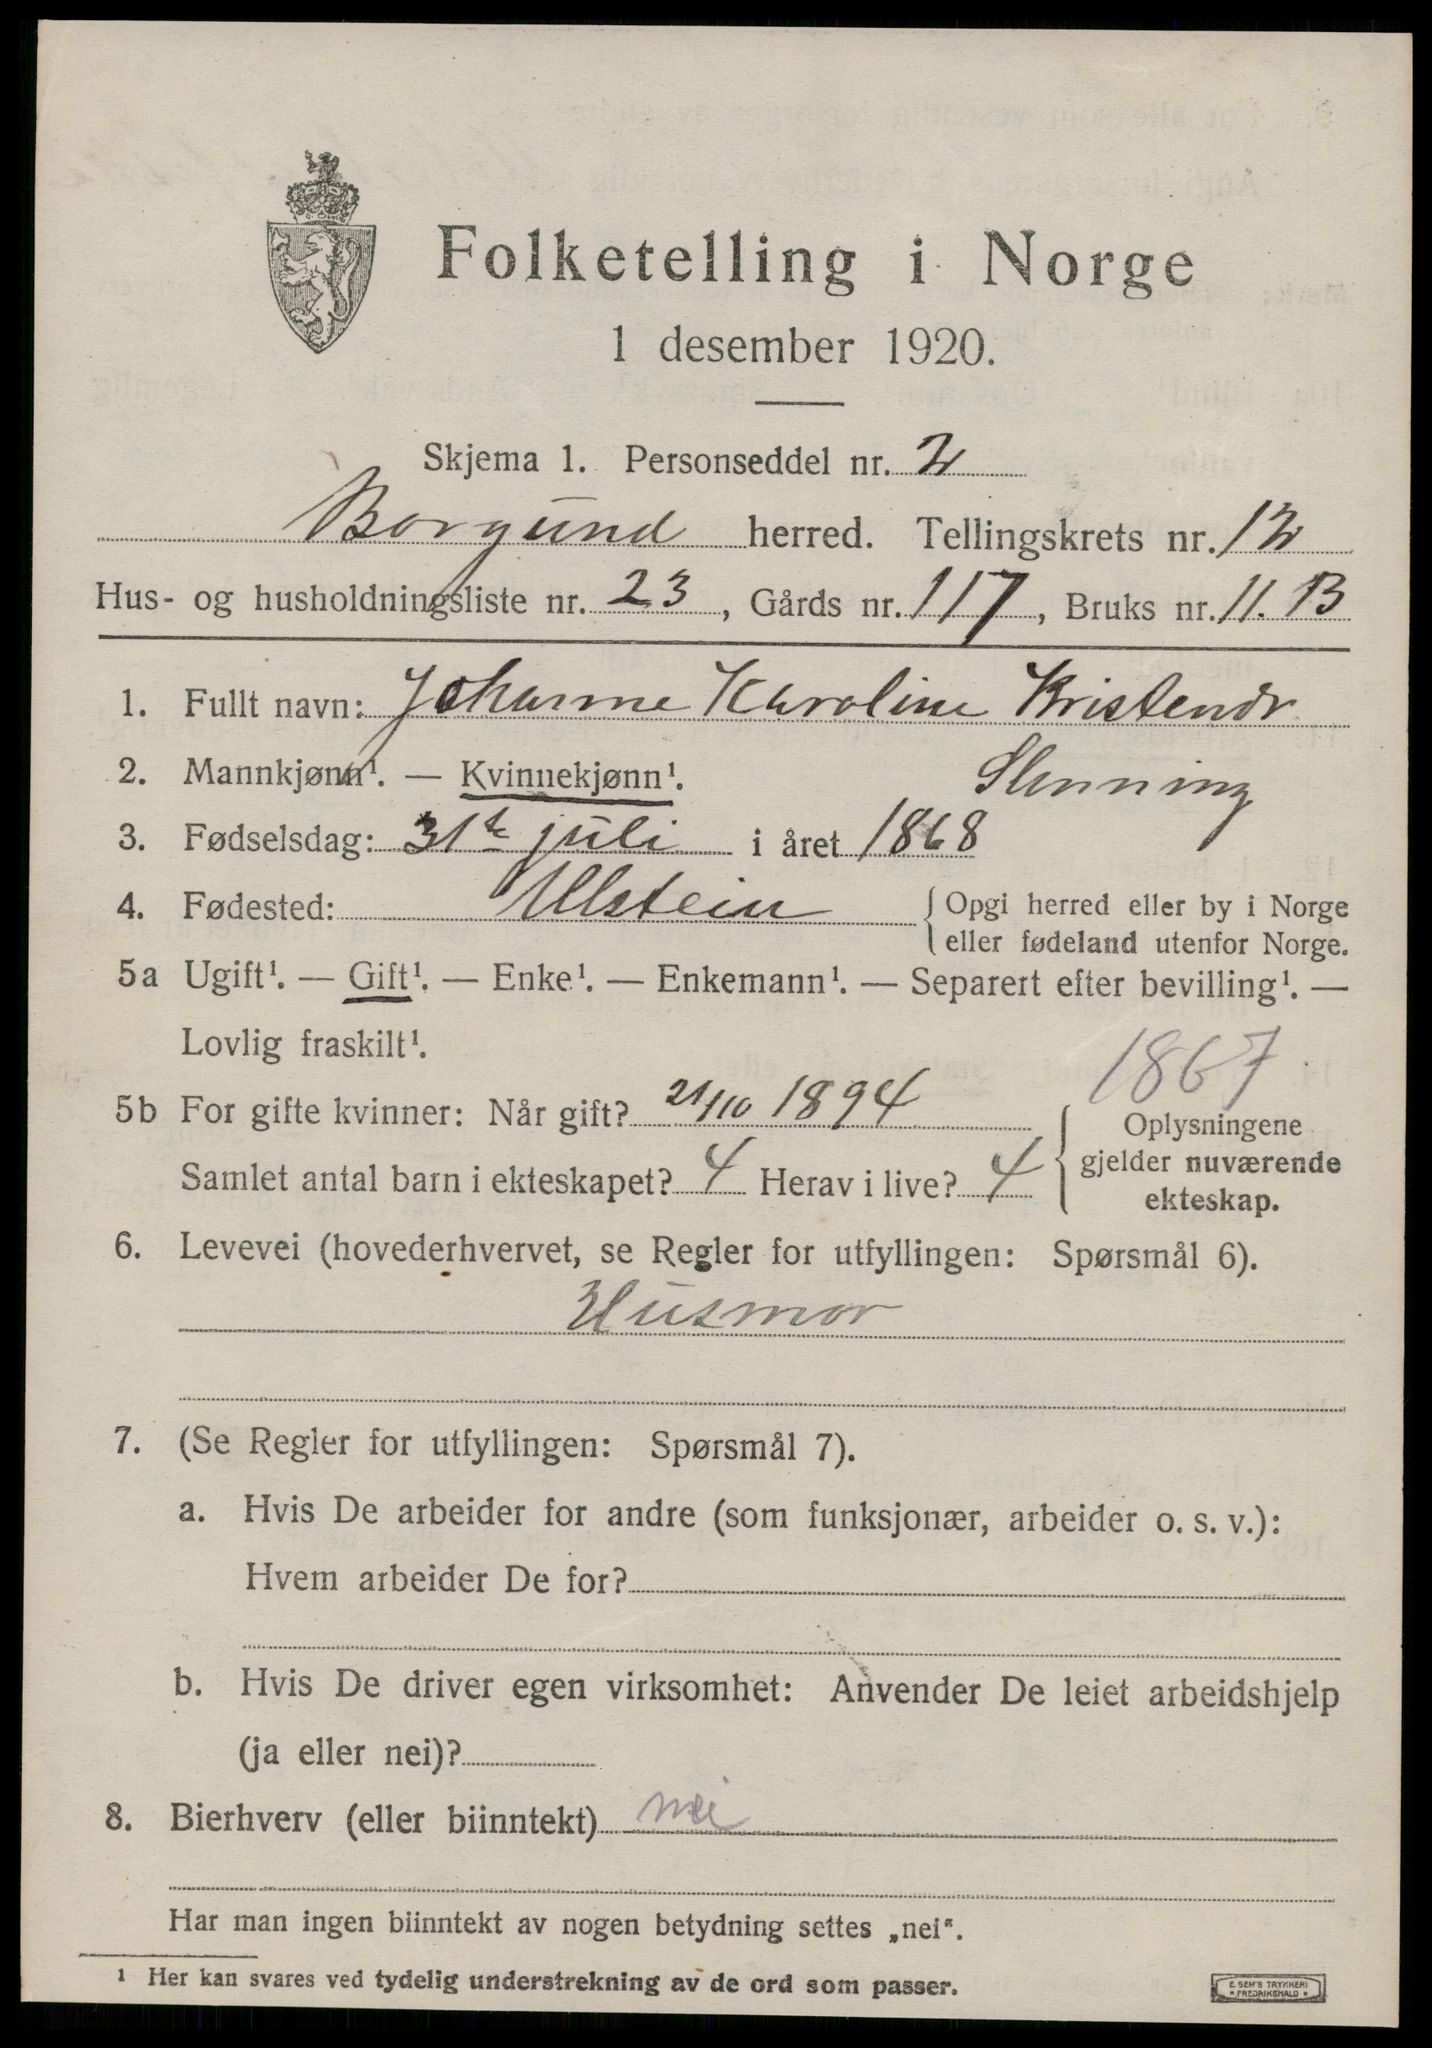 Folketelling i Norge
1 desember 1920.
Skjema 1. Personseddel nr. 2
Borgund herred. Tellingskrets nr. 12
Hus- og husholdningsliste nr. 23, Gårds nr. 117, Bruks nr. 11. B
1. Fullt navn: Johanne Karoline Kristendr
2. Mannkjønn¹. — Kvinnekjønn¹. Slenning
3. Fødselsdag: 31te juli i året 1868
4. Fødested: Ulstein { Opgi herred eller by i Norge
eller fødeland utenfor Norge.
5a Ugift¹. — Gift¹. — Enke¹. — Enkemann¹. — Separert efter bevilling¹. —
Lovlig fraskilt¹.
1867
5b For gifte kvinner: Når gift? 21/10 1894 { Oplysningene
gjelder nuværende
ekteskap.
Samlet antal barn i ekteskapet? 4 Herav i live? 4
6. Levevei (hovederhvervet, se Regler for utfyllingen: Spørsmål 6).
Husmor
7. (Se Regler for utfyllingen: Spørsmål 7).
a. Hvis De arbeider for andre (som funksjonær, arbeider o. s. v.):
Hvem arbeider De for?
b. Hvis De driver egen virksomhet: Anvender De leiet arbeidshjelp
(ja eller nei)?
8. Bierhverv (eller biinntekt) nei
Har man ingen biinntekt av nogen betydning settes „nei“.
¹ Her kan svares ved tydelig understrekning av de ord som passer.
E. SEM'S TRYKKERI
* FREDRIKSHALD *